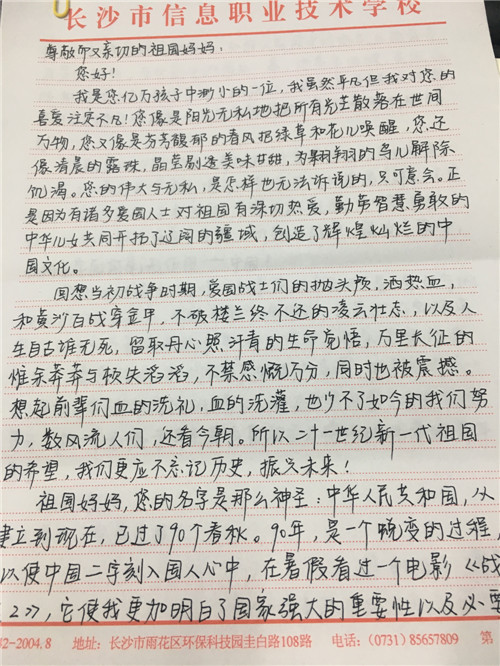 长沙市信息职业技术学校
尊敬而又亲切的祖国妈妈:
您好!
我是您亿万孩子中渺小的一位,我虽然平凡但我对您的
喜爱注定不凡!您像是阳光无私地把所有光芒散落在世间
万物,您又像是芬芳馥郁的春风把绿草和花儿唤醒,您还
像清晨的露珠,晶莹剔透美味甘甜,为翱翔的鸟儿解除
饥渴。您的伟大与无私,是怎样也无法诉说的,只可意会。正
是因为有诸多爱国人士对祖国有深切热爱,勤劳智慧勇敢的
中华儿女共同开拓了辽阔的疆域,创造了辉煌灿烂的中
国文化。
回想当初战争时期,爱国战士们的抛头颅,洒热血,
和黄沙百战穿金甲,不破楼兰终不还的凌云壮志,以及人
生自古谁无死,留取丹心照汗青的生命觉悟,万里长征的
惟余莽莽与顿失滔滔,不禁感慨万分,同时也被震撼。
想起前辈们血的洗礼,血的洗灌,也少不了如今的我们努
力,数风流人们,还看今朝。所以二十一世纪新一代祖国
的希望,我们更应不忘记历史,振兴未来!
祖国妈妈,您的名字是那么神圣:中华人民共和国,从
建立到现在,已过了90个春秋。90年,是一个蜕变的过程,
以使中国二字刻入国人心中,在暑假看过一个电影《战
2》,它使我更加明白了国家强大的重要性以及必要
02-2004.8 地址:长沙市雨花区环保科技园圭白路108路 电话:(0731)85657809 第